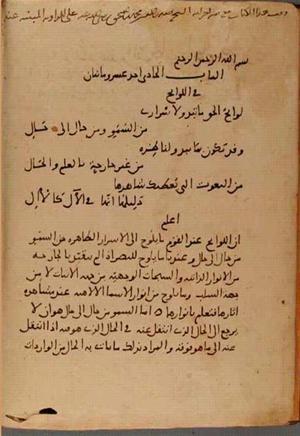 بسم الله الرحمن الرحيم
الباب الحادي عشر ومائتان
في اللوائح
لوائح الحق ما تبدو لأسراري
من السمو ومن حال إلى حال
وقد تكون بما يبدو لناظره
من غير جارحة بالعلم والحال
من النعوت التي يعطيك شاهدها
دليلها أنها في الآل كالآل
اعلم
ان اللوائح عند القوم ما يلوح الى الاسرار الظاهرة من السمو
من حال الى حال وعندنا ما يلوح للبصر اذا لم يتقيد بالجارحة
من الانوار الذاتية والسبحات الوجهية من جهة الاثبات لا من
جهة السلب وما يلوح من انوار الاسما الالهية عند مشاهدة
اثارها فتعلم بانوارها اما السمو من حال الى حال هو ان لا
يرجع الى الحال الذي انتقل عنه في الحال الذي هو فيه اذا انتقل
عنه الى ما هو فوقه والمراد بذلك ما يات به الحال من الواردات